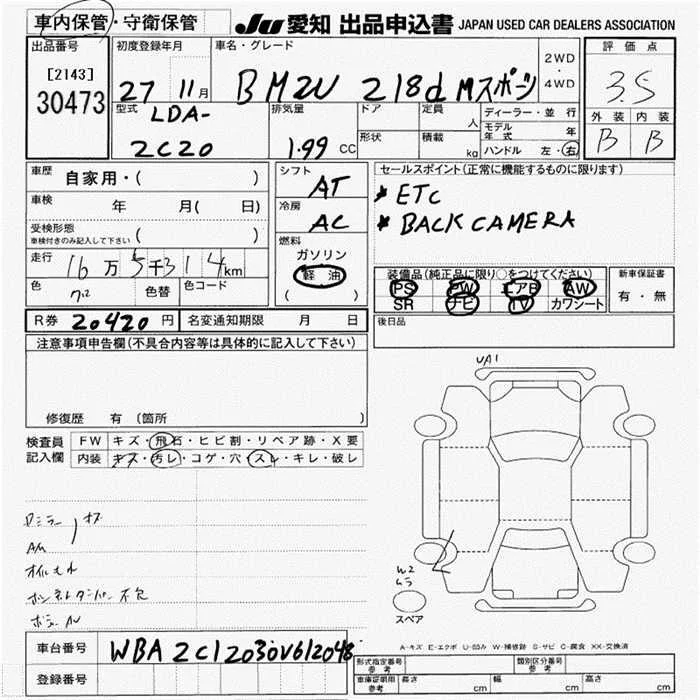 車内保管・守衛保管
JU 愛知 出品申込書 JAPAN USED CAR DEALERS ASSOCIATION
出品番号
[2143]
30473
初度登録年月
27 11月
車名・グレード
BMW 218d Mスポーツ
2WD
・
4WD
評価点
3.5
外装 内装
B B
型式
LDA-
2C20
排気量
1.99 CC
ドア
定員
人
形状
積載
kg
ディーラー・並行
モデル年式 年
ハンドル 左・右
車歴 自家用・( )
車検 年 月( 日)
受検形態
車検付きのみ記入して下さい ( )
走行 16万5千314km
色 色替 色コード
シフト
AT
冷房
AC
燃料
ガソリン
軽油
( )
セールスポイント(正常に機能するものに限ります)
* ETC
* BACK CAMERA
装備品(純正品に限り○をつけてください)
PS PW エアB AW
SR ナビ TV カワシート
新車保証書
有・無
R券 20420円 名変通知期限 月 日
後日品
注意事項申告欄(不具合内容等は具体的に記入して下さい)
修復歴 有 (箇所 )
検査員
記入欄
FW キズ・飛石・ヒビ割・リペア跡・X要
内装 キズ・汚レ・コゲ・穴・スレ・キレ・破レ
UA1
AM
W2
スペア
A-キズ E-エクボ U-凹み W-補修跡 S-サビ C-腐食 XX-交換済
車台番号 WBA2C12030V612048
登録番号
形式指定番号
参考
類別区分番号
参考
車庫証明用
参考
長さ cm 幅 cm 高さ cm